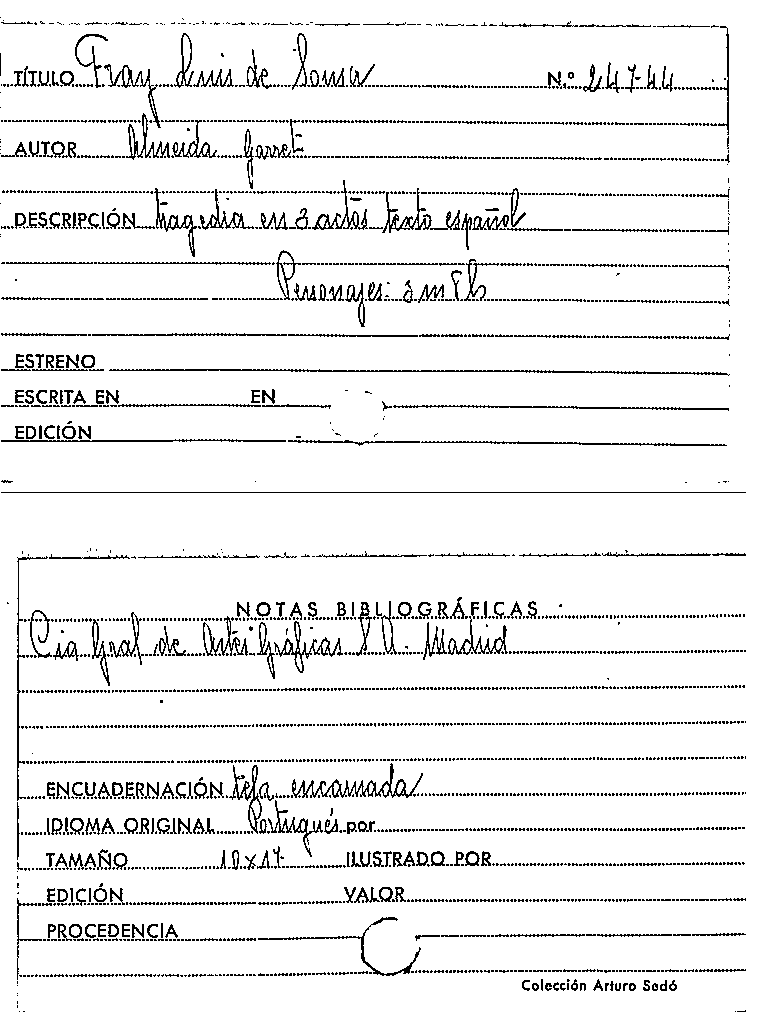 TÍTULO Fray Luis de Sousa N.º 247-44
AUTOR Almeida Garret
DESCRIPCIÓN tragedia en 3 actos texto español
Personajes: 3 m 8 h
ESTRENO
ESCRITA EN EN
EDICIÓN
NOTAS BIBLIOGRÁFICAS
Cia Gral de Artes Gráficas S A. Madrid
ENCUADERNACIÓN tela encarnada
IDIOMA ORIGINAL Portugués por
TAMAÑO 10x17 ILUSTRADO POR
EDICIÓN VALOR
PROCEDENCIA
Colección Arturo Sedó